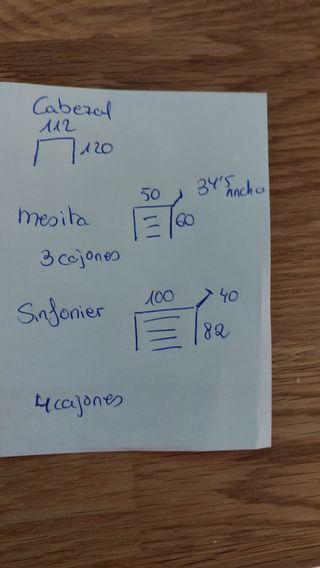 Cabezal
112
120
50
34'5
Ancho
Mesita
60
3 cajones
100
40
Sinfonier
82
4 cajones